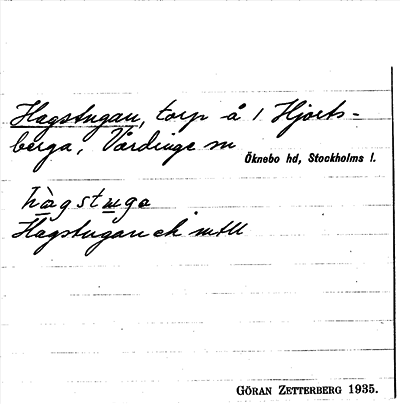 Hagstugan, torp å 1 Hjorts-
berga, Vårdinge sn
Öknebo hd, Stockholms l.
hàgstuga
Hagstugan ek
GÖRAN ZETTERBERG 1935.